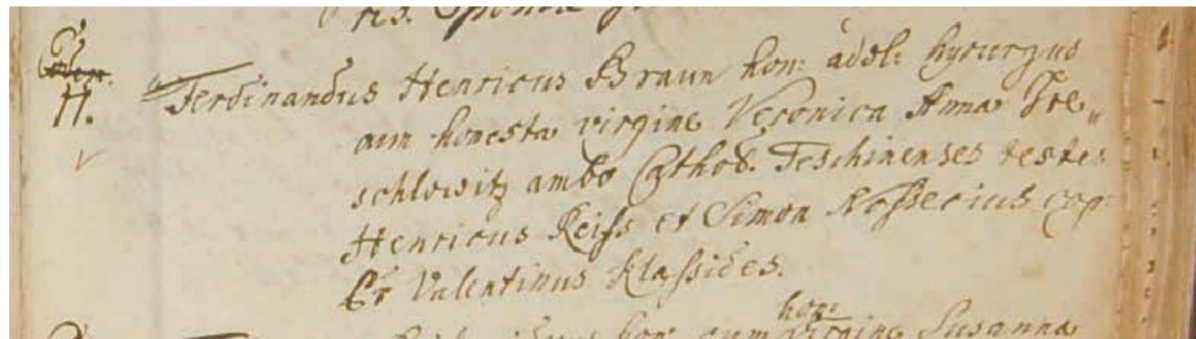 Ferdinandus Henricus Braun hon: adol: hyrurgus
cum honesta virgine Veronica Anna Tre„
schlowitz ambo Cathol. Teschinenses testes
Henricus Reiss et Simon cop:
Valentinus Klassides.
hon:
hon: cum virgine Susanna
11.